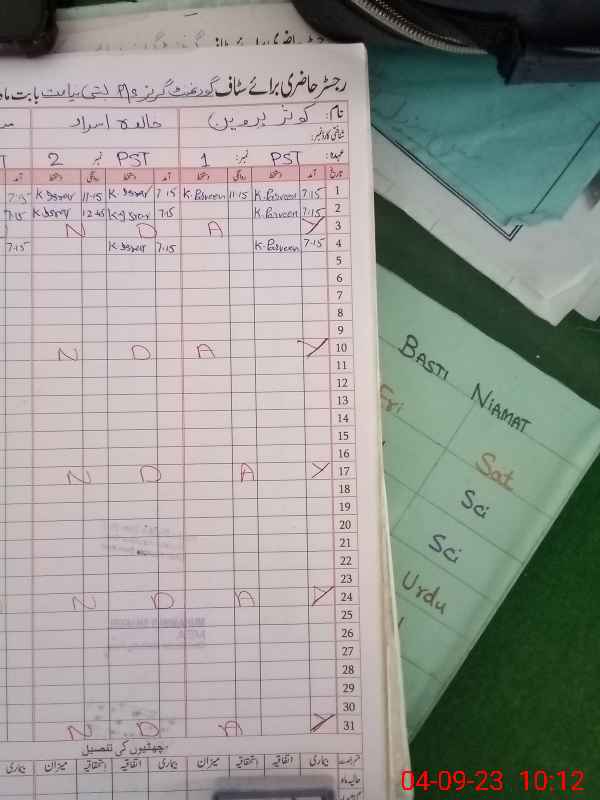 رجسٹر حاضری برائے سٹاف گورنمنٹ گرلز پ/س بستی نیامت بابت ماہ
نام: کوثر پروین خالدہ اسرار
شناختی کارڈ نمبر:
عہدہ: PST نمبر: 1 PST نمبر 2
تاریخ آمد دستخط روانگی دستخط آمد دستخط روانگی دستخط آمد
1 7.15 K.Parveen 11.15 K.Parveen 7.15 K.Israr 11.15 K.Israr 7.15
2 7.15 K.Parveen 7.15 K.Israr 12.45 K.Israr 7.15
3 Y A D N
4 7.15 K.Parveen 7.15 K.Israr 7.15
5
6
7
8
9
10 Y A D N
11
12
13
14
15
16
17 Y A D N
18
19
20
21
22
23
24 Y A D N
25
26
27
28
29
30
31 Y A D N
چھٹیوں کی تفصیل
بیماری اتفاقیہ استحقاقیہ میزان بیماری اتفاقیہ استحقاقیہ میزان بیماری
حالیہ ماہ
BASTI NIAMAT
Fri Sat
Sci
Sci
Urdu
04-09-23 10:12